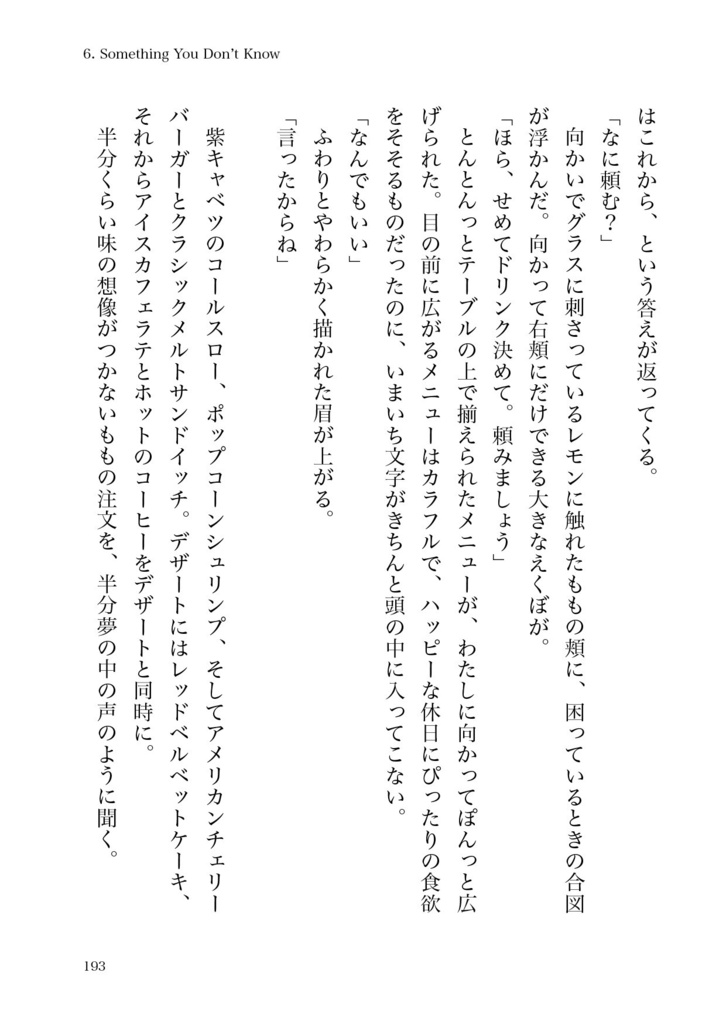 6. Something You Don't Know
はこれから、という答えが返ってくる。
「なに頼む？」
向かいでグラスに刺さっているレモンに触れたももの頬に、困っているときの合図
が浮かんだ。向かって右頬にだけできる大きなえくぼが。
「ほら、せめてドリンク決めて。頼みましょう」
とんとんっとテーブルの上で揃えられたメニューが、わたしに向かってぽんっと広
げられた。目の前に広がるメニューはカラフルで、ハッピーな休日にぴったりの食欲
をそそるものだったのに、いまいち文字がきちんと頭の中に入ってこない。
「なんでもいい」
ふわりとやわらかく描かれた眉が上がる。
「言ったからね」
紫キャベツのコールスロー、ポップコーンシュリンプ、そしてアメリカンチェリー
バーガーとクラシックメルトサンドイッチ。デザートにはレッドベルベットケーキ、
それからアイスカフェラテとホットのコーヒーをデザートと同時に。
半分くらい味の想像がつかないももの注文を、半分夢の中の声のように聞く。
193